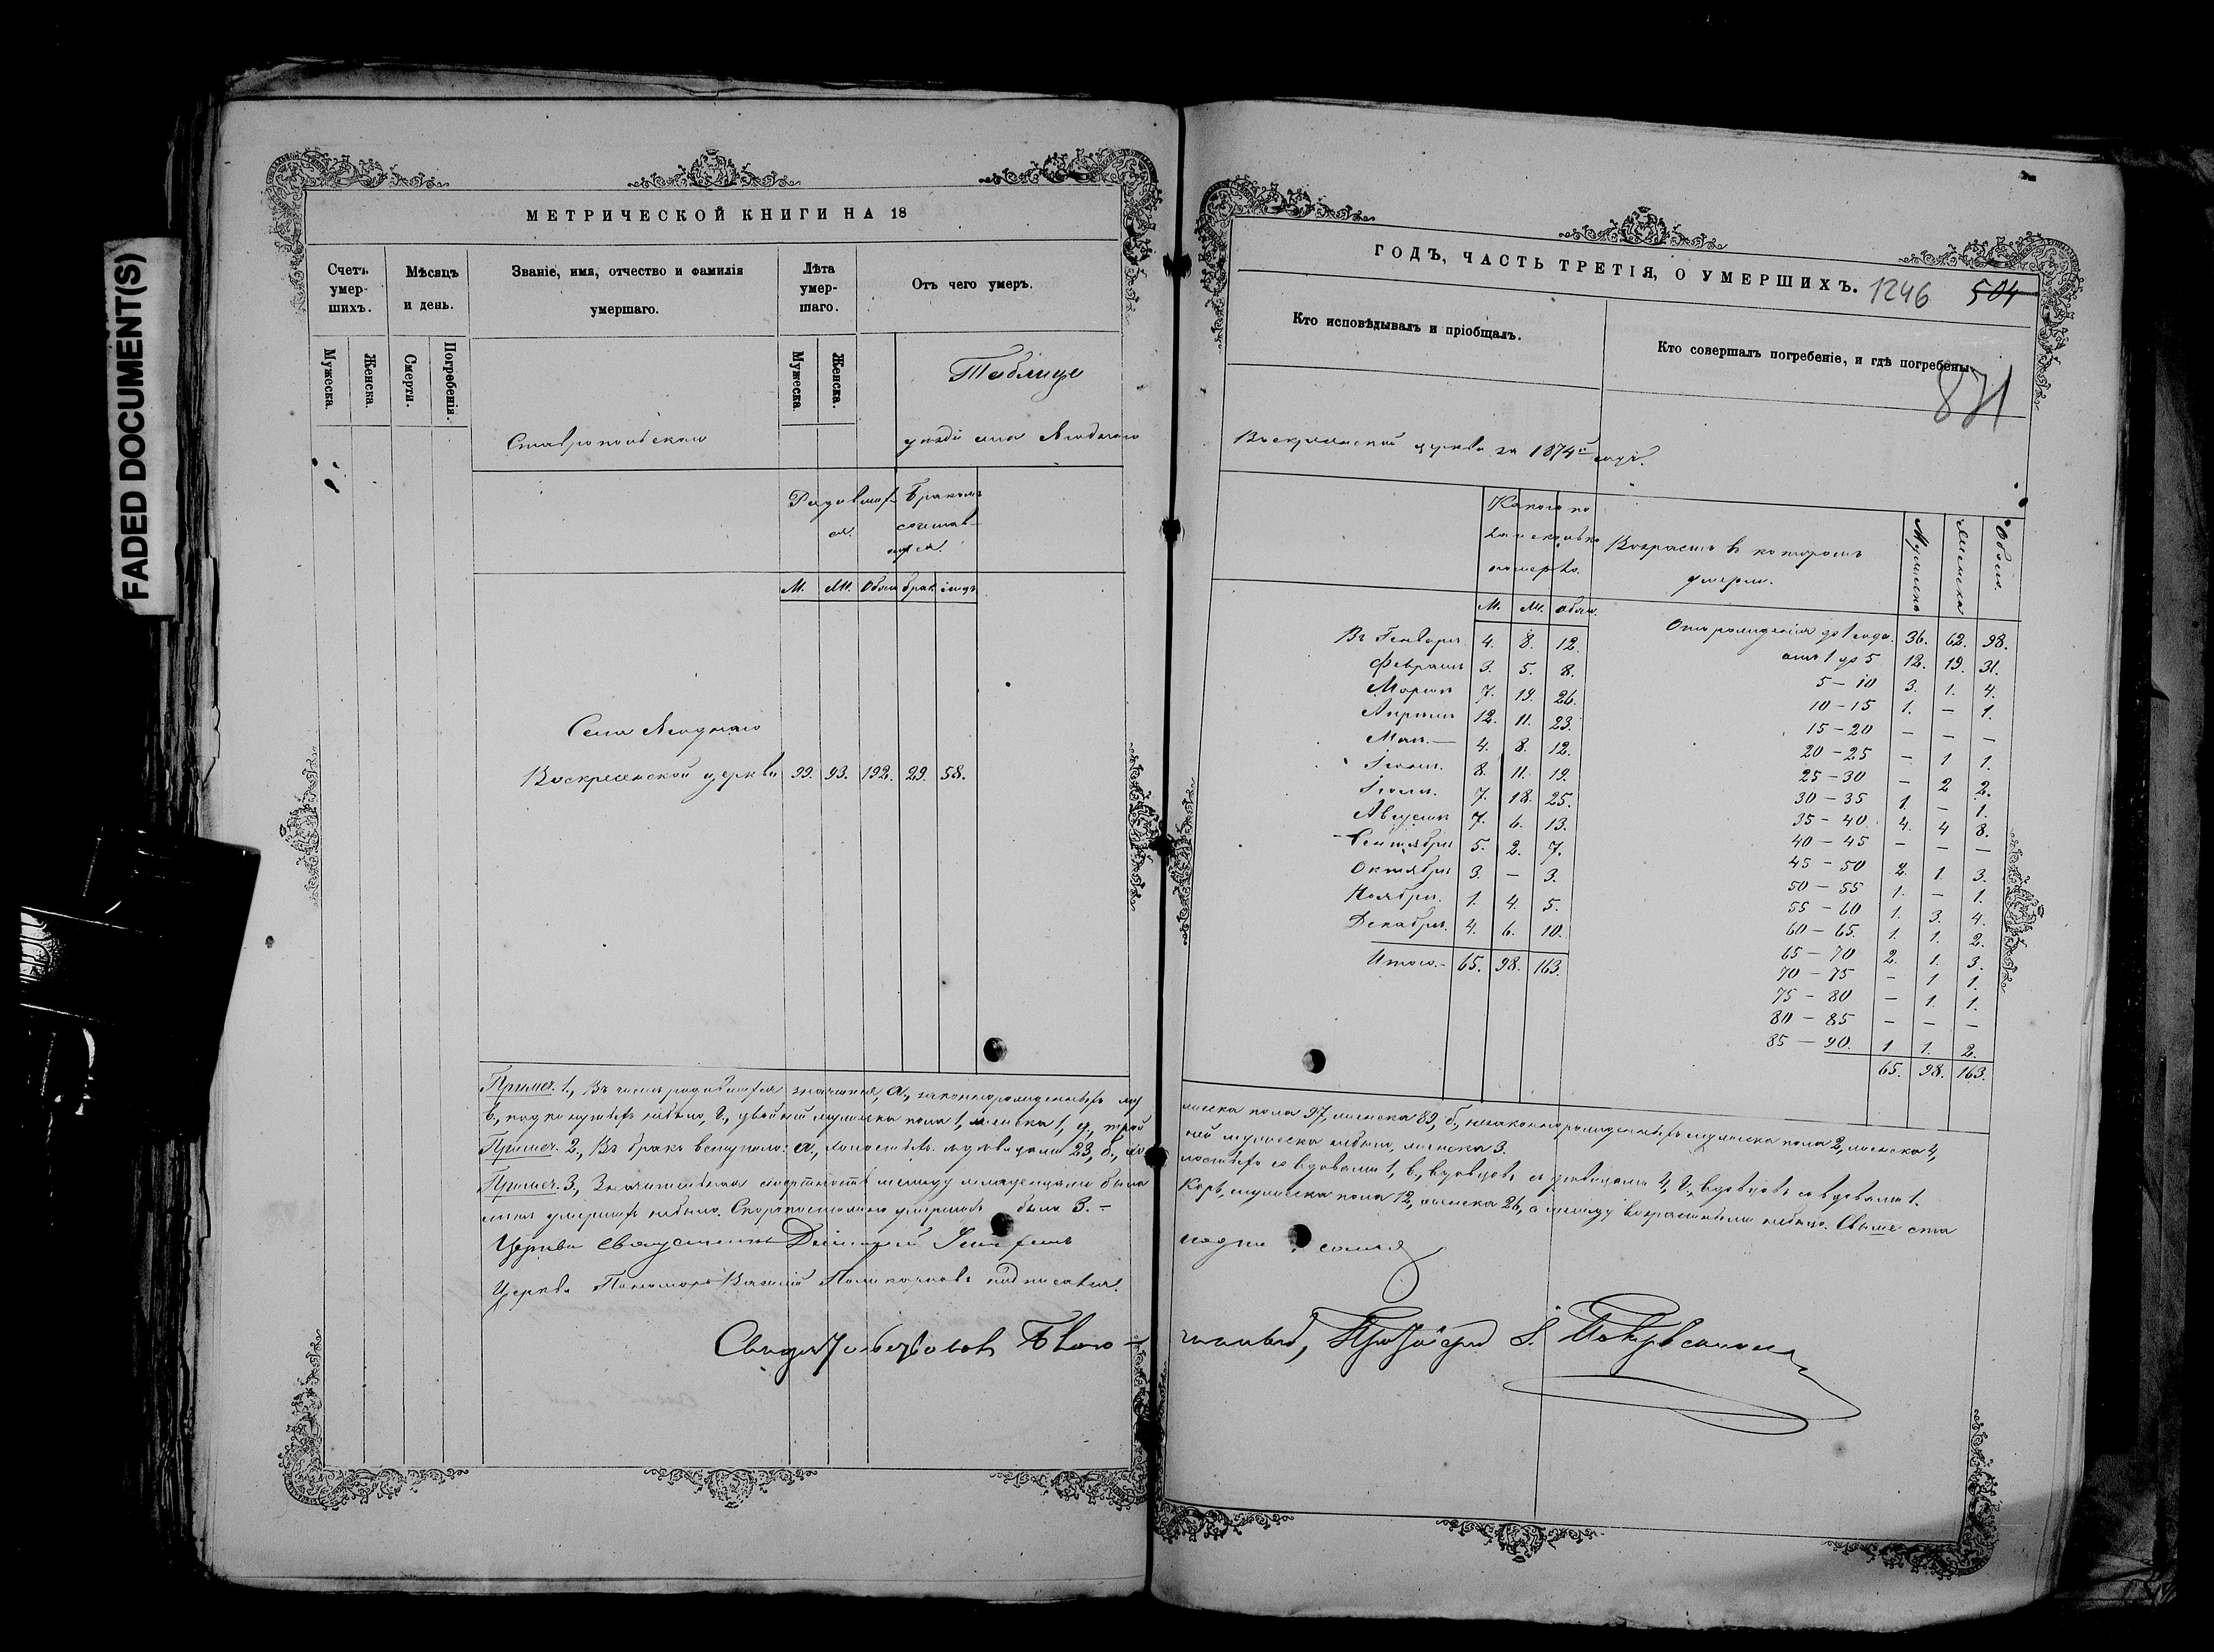 FADED DOCUMENT(S)
МЕТРИЧЕСКОЙ КНИГИ НА 18
Счетъ умер-шихъ.
Мѣсяцъ и день.
Званіе, имя, отчество и фамилія умершаго.
Лѣта умер-шаго.
Отъ чего умеръ.
Мужеска
Женска.
Смерти.
Погребенія.
Мужеска
Женска.
Таблица
Ставропольскаго уѣзда села Ягоднаго
Родивших-ся.
Бракомъ сочетав-
М. Ж. Обоег брак. лицъ
Села Ягоднаго
Воскресенской церкви 99. 93. 192. 29. 58.
Примѣч. 1., Въ числѣ родившихся значатся, а., законнорожденныхъ му
в., подкинутыхъ небыло, г., двойней мужеска пола 1, женска 1, д., трой
Примѣч. 2., Въ бракъ вступило: а., холостыхъ съ дѣвицами 23, б., хо
Примѣч. 3., Значительная смертность между младенцами была
лѣтъ умершихъ небыло. Скоропостижно умершихъ было 3. –
Церкви Священникъ Димитрій
Церкви Пономарь Василій Поликарповъ подписался.
Свидѣтельствовалъ Благо-
ГОДЪ, ЧАСТЬ ТРЕТІЯ, О УМЕРШИХЪ.
1246 504
Кто исповѣдывалъ и пріобщалъ.
Кто совершалъ погребеніе, и гдѣ погребены.
871
Воскресенской церкви за 1874й годъ.
Какого по-ла и сколько померло.
Возрастъ въ которомъ умерли.
Мужска
Женска
Обоего.
М. Ж. Обоег.
Въ Генварѣ 4. 8. 12.
Февралѣ 3. 5. 8.
Мартѣ 7. 19. 26.
Апрѣлѣ 12. 11. 23.
Маѣ. — 4. 8. 12.
Іюнѣ. 8. 11. 19.
Іюлѣ. 7. 18. 25.
Августѣ 7. 6. 13.
Сентябрѣ 5. 2. 7.
Октябрѣ 3. — 3.
Ноябрѣ. 1. 4. 5.
Декабрѣ. 4. 6. 10.
Итого. – 65. 98. 163.
Отъ рожденія до 1 года. 36. 62. 98.
отъ 1 до 5 12. 19. 31.
5 – 10 3. 1. 4.
10 – 15 1. — 1.
15 – 20 — — —
20 – 25 — 1 1.
25 – 30 — 2 2.
30 – 35 1. — 1.
35 – 40. 4. 4 8.
40 – 45 — — —
45 – 50 2. 1. 3.
50 – 55 1. — 1.
55 – 60 1. 3. 4.
60 – 65. 1. 1. 2.
65 – 70 2. 1. 3.
70 – 75 — 1 1.
75 – 80 — 1. 1.
80 – 85 — — —
85 – 90. 1 1. 2.
65. 98. 163.
жеска пола 97, женска 89, б., незаконнорожденныхъ мужеска пола 2, женска 4,
ней мужеска небыло, женска 3.
лостыхъ со вдовами 1, в., вдовцовъ съ дѣвицами 4, г., вдовцовъ со вдовами 1.
Корь, мужеска пола 12, женска 26, а между возрастными небыло. Свыше ста
чинный, Протоіерей